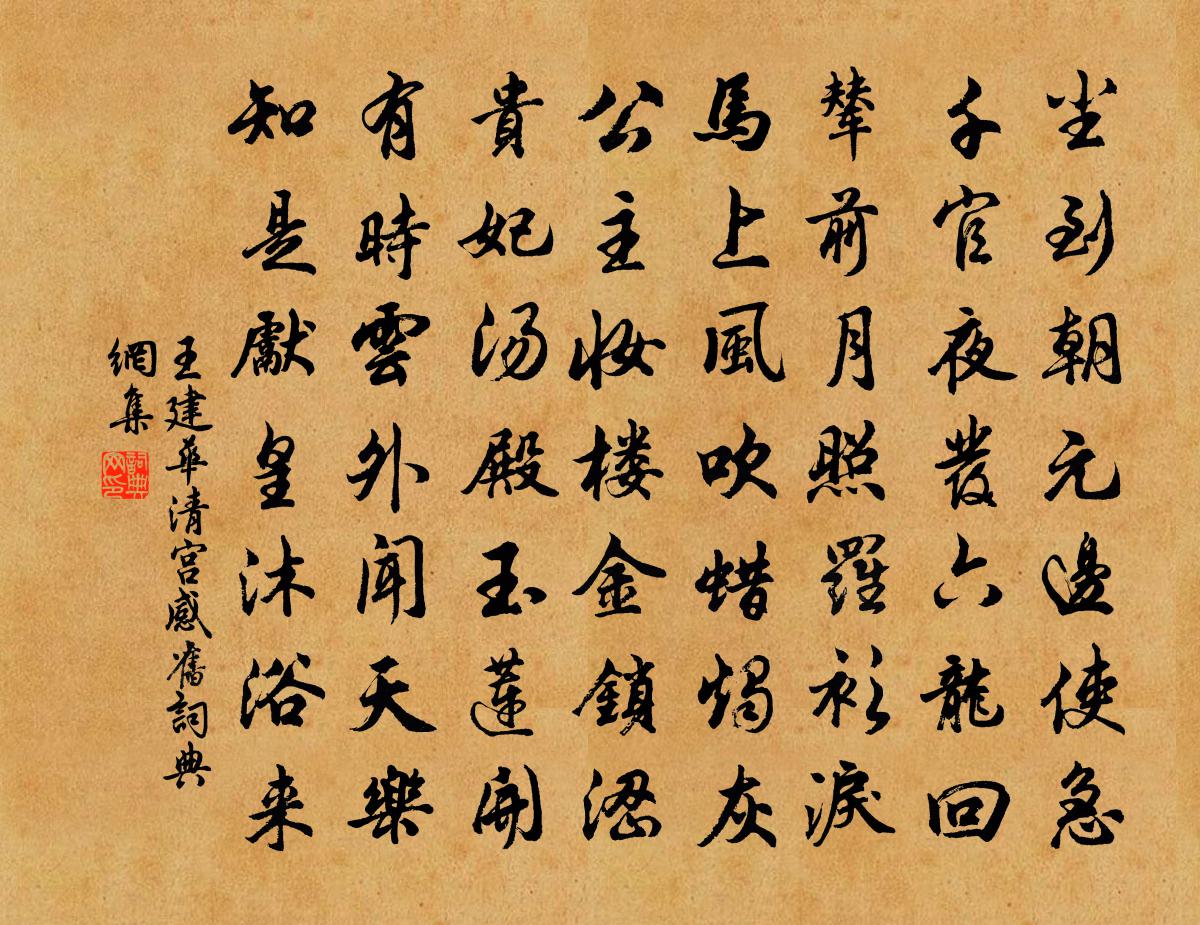 尘到朝元邊使急
千官夜發六龍回
輦前月照羅衫淚
馬上風吹蜡燭灰
公主妝楼金鎖澀
貴妃湯殿玉蓮開
有時雲外聞天樂
知是獻皇沐浴来
王建華清宮感舊詞典
網集
詞典网印